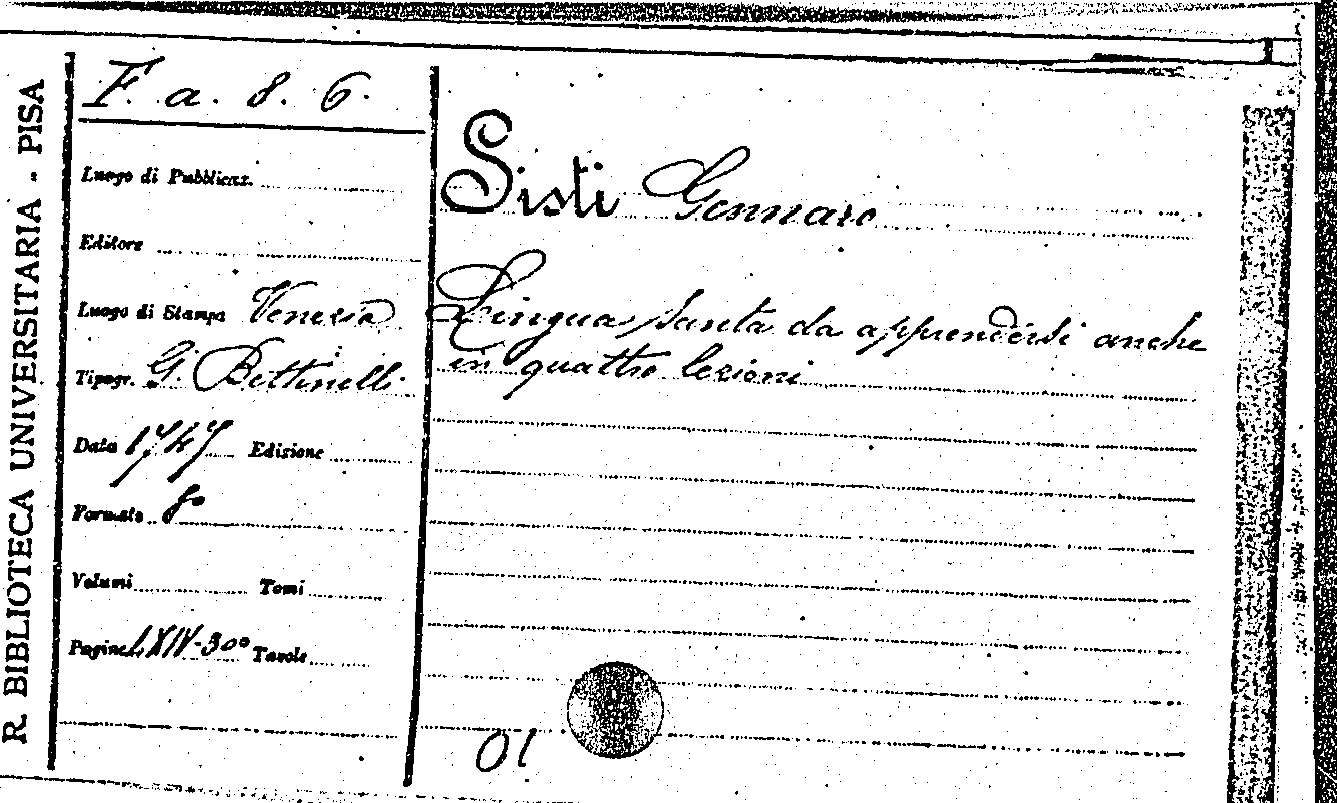 R. BIBLIOTECA UNIVERSITARIA - PISA
F. a. 8. 6.
Luogo di Pubblicaz.
Editore
Luogo di Stampa Venezia
Tipogr. G. Bettinelli
Data 1747 Edizione
Formato 8º
Volumi Tomi
Pagine LXIV-300 Tavole
Sisti Gennaro
Lingua santa da apprendersi anche
in quattro lezioni
01